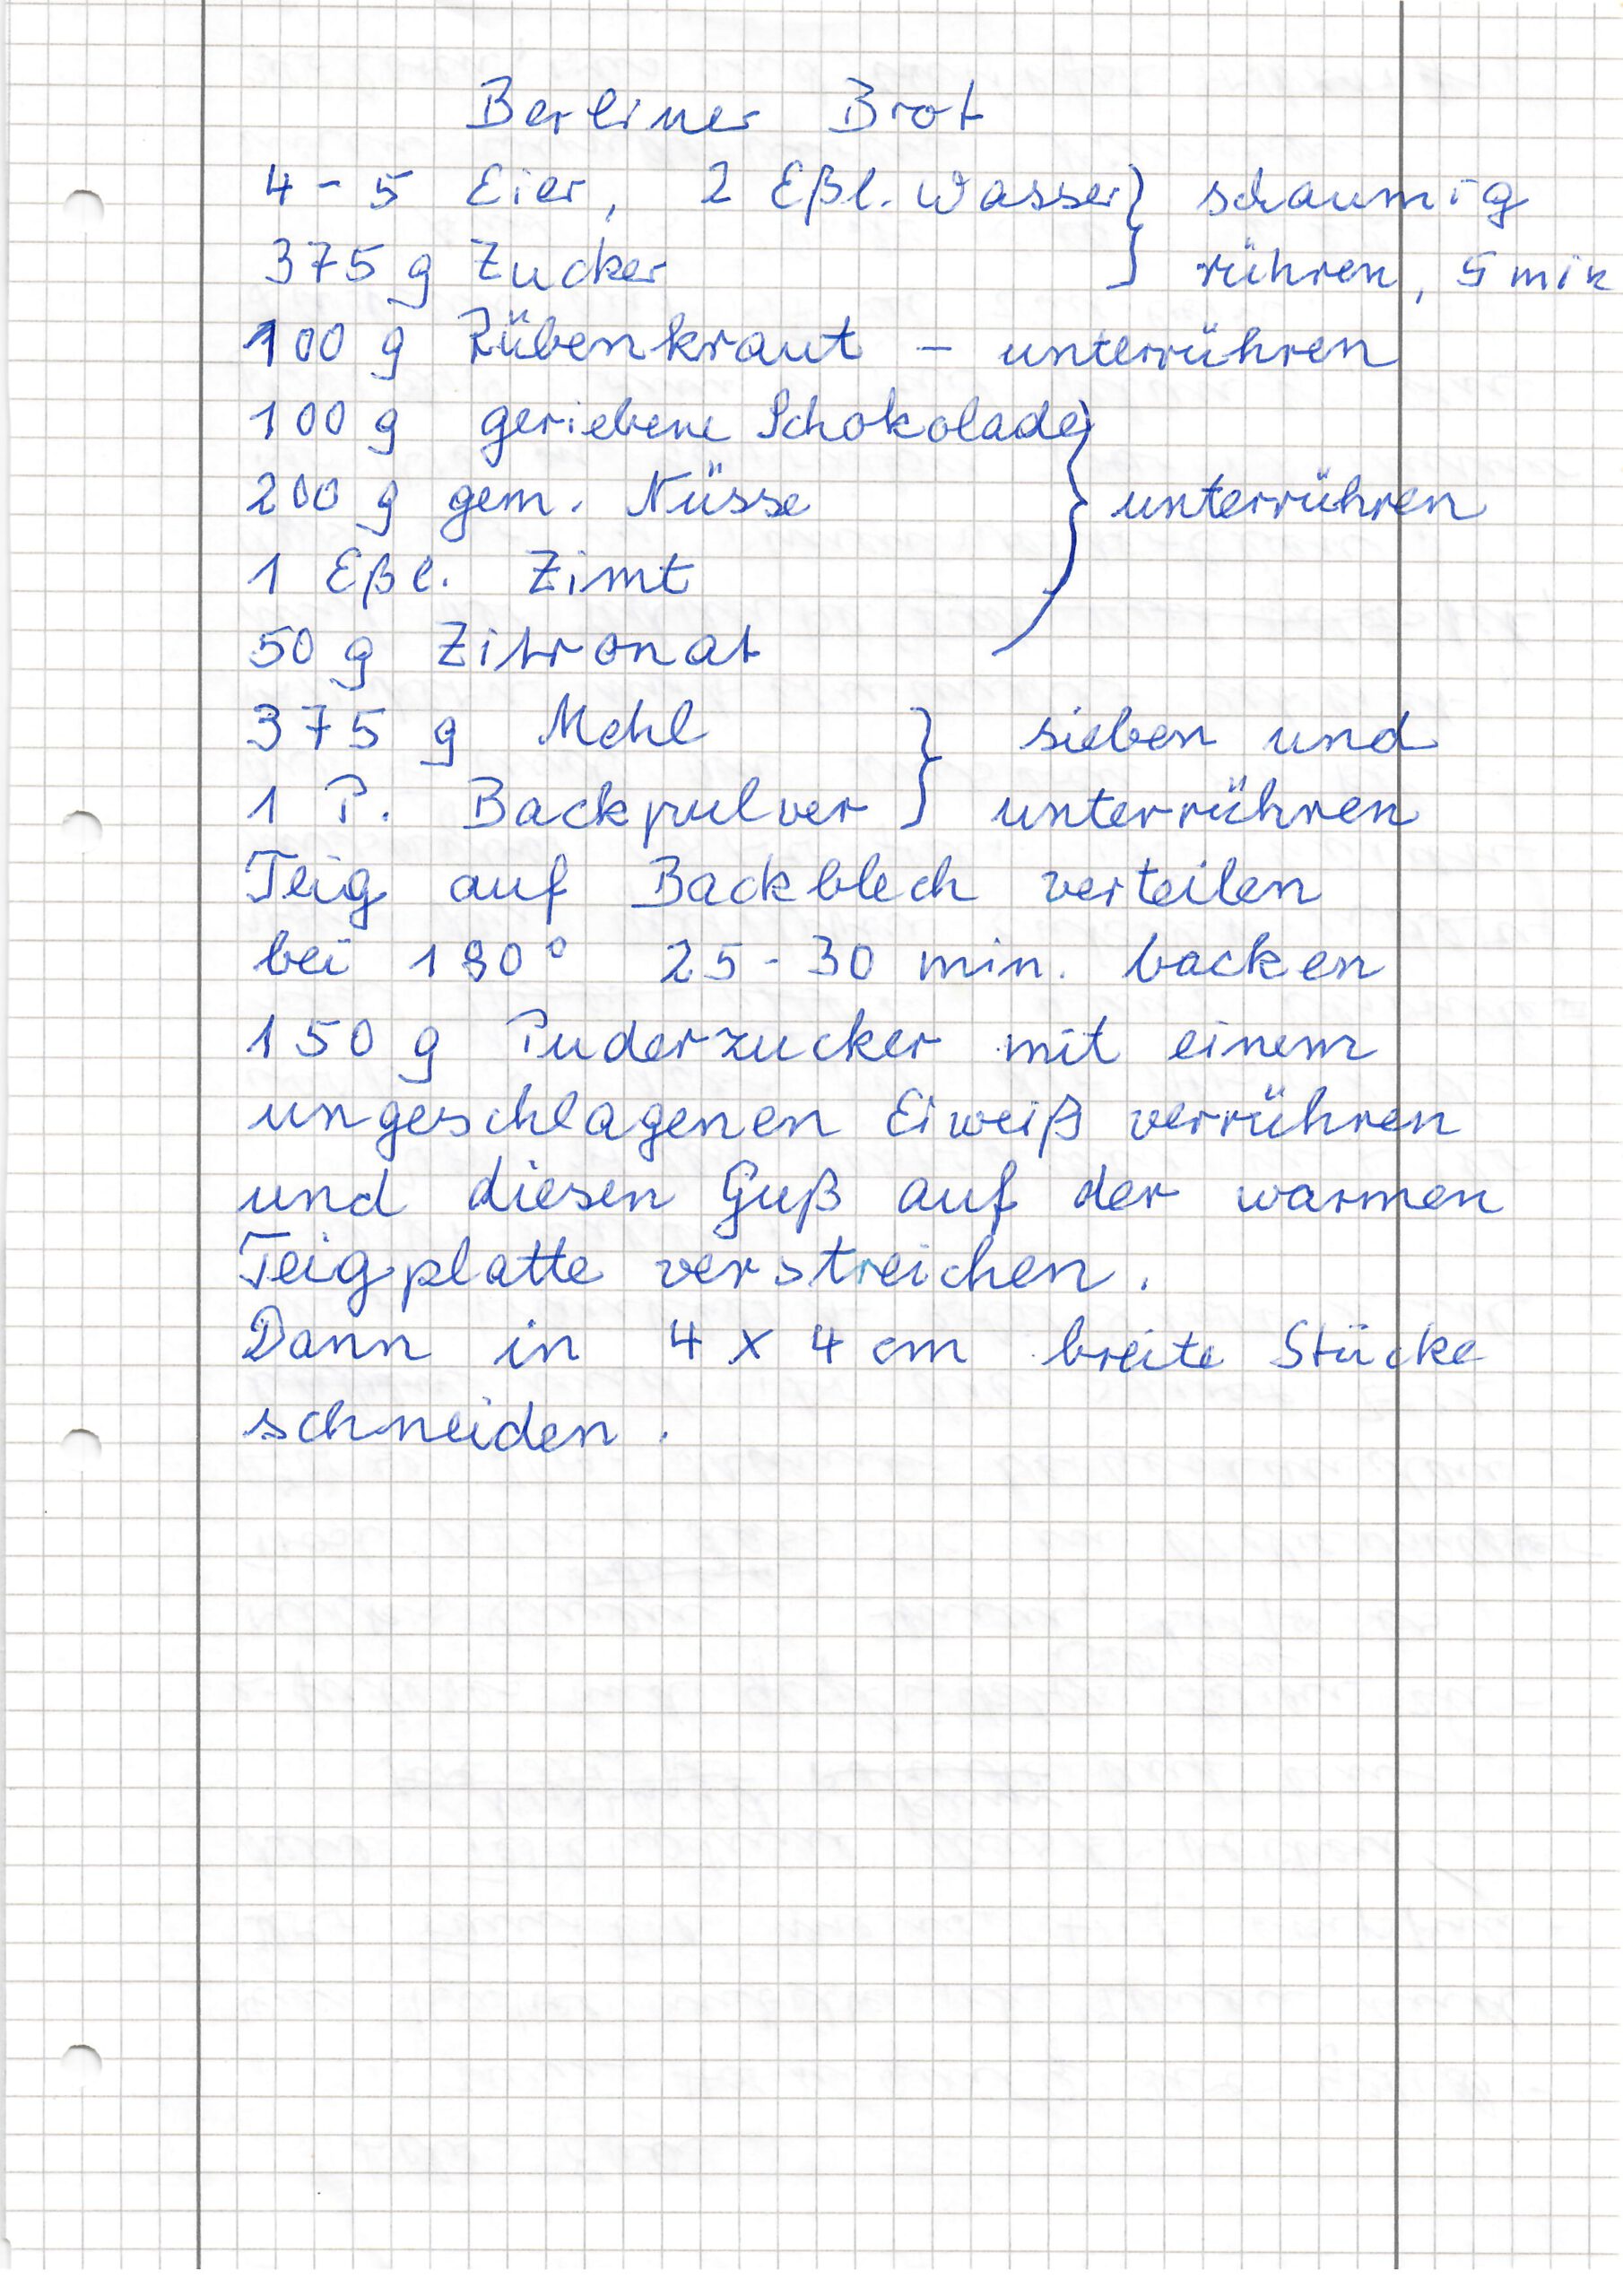 Berliner Brot
4 - 5 Eier, 2 Eßl. Wasser } schaumig
375 g Zucker } rühren, 5 min
100 g Rübenkraut - unterrühren
100 g geriebene Schokolade
200 g gem. Nüsse } unterrühren
1 Eßl. Zimt
50 g Zitronat
375 g Mehl } sieben und
1 P. Backpulver } unterrühren
Teig auf Backblech verteilen
bei 180° 25 - 30 min. backen
150 g Puderzucker mit einem
ungeschlagenen Eiweiß verrühren
und diesen Guß auf der warmen
Teigplatte verstreichen.
Dann in 4 x 4 cm breite Stücke
schneiden.